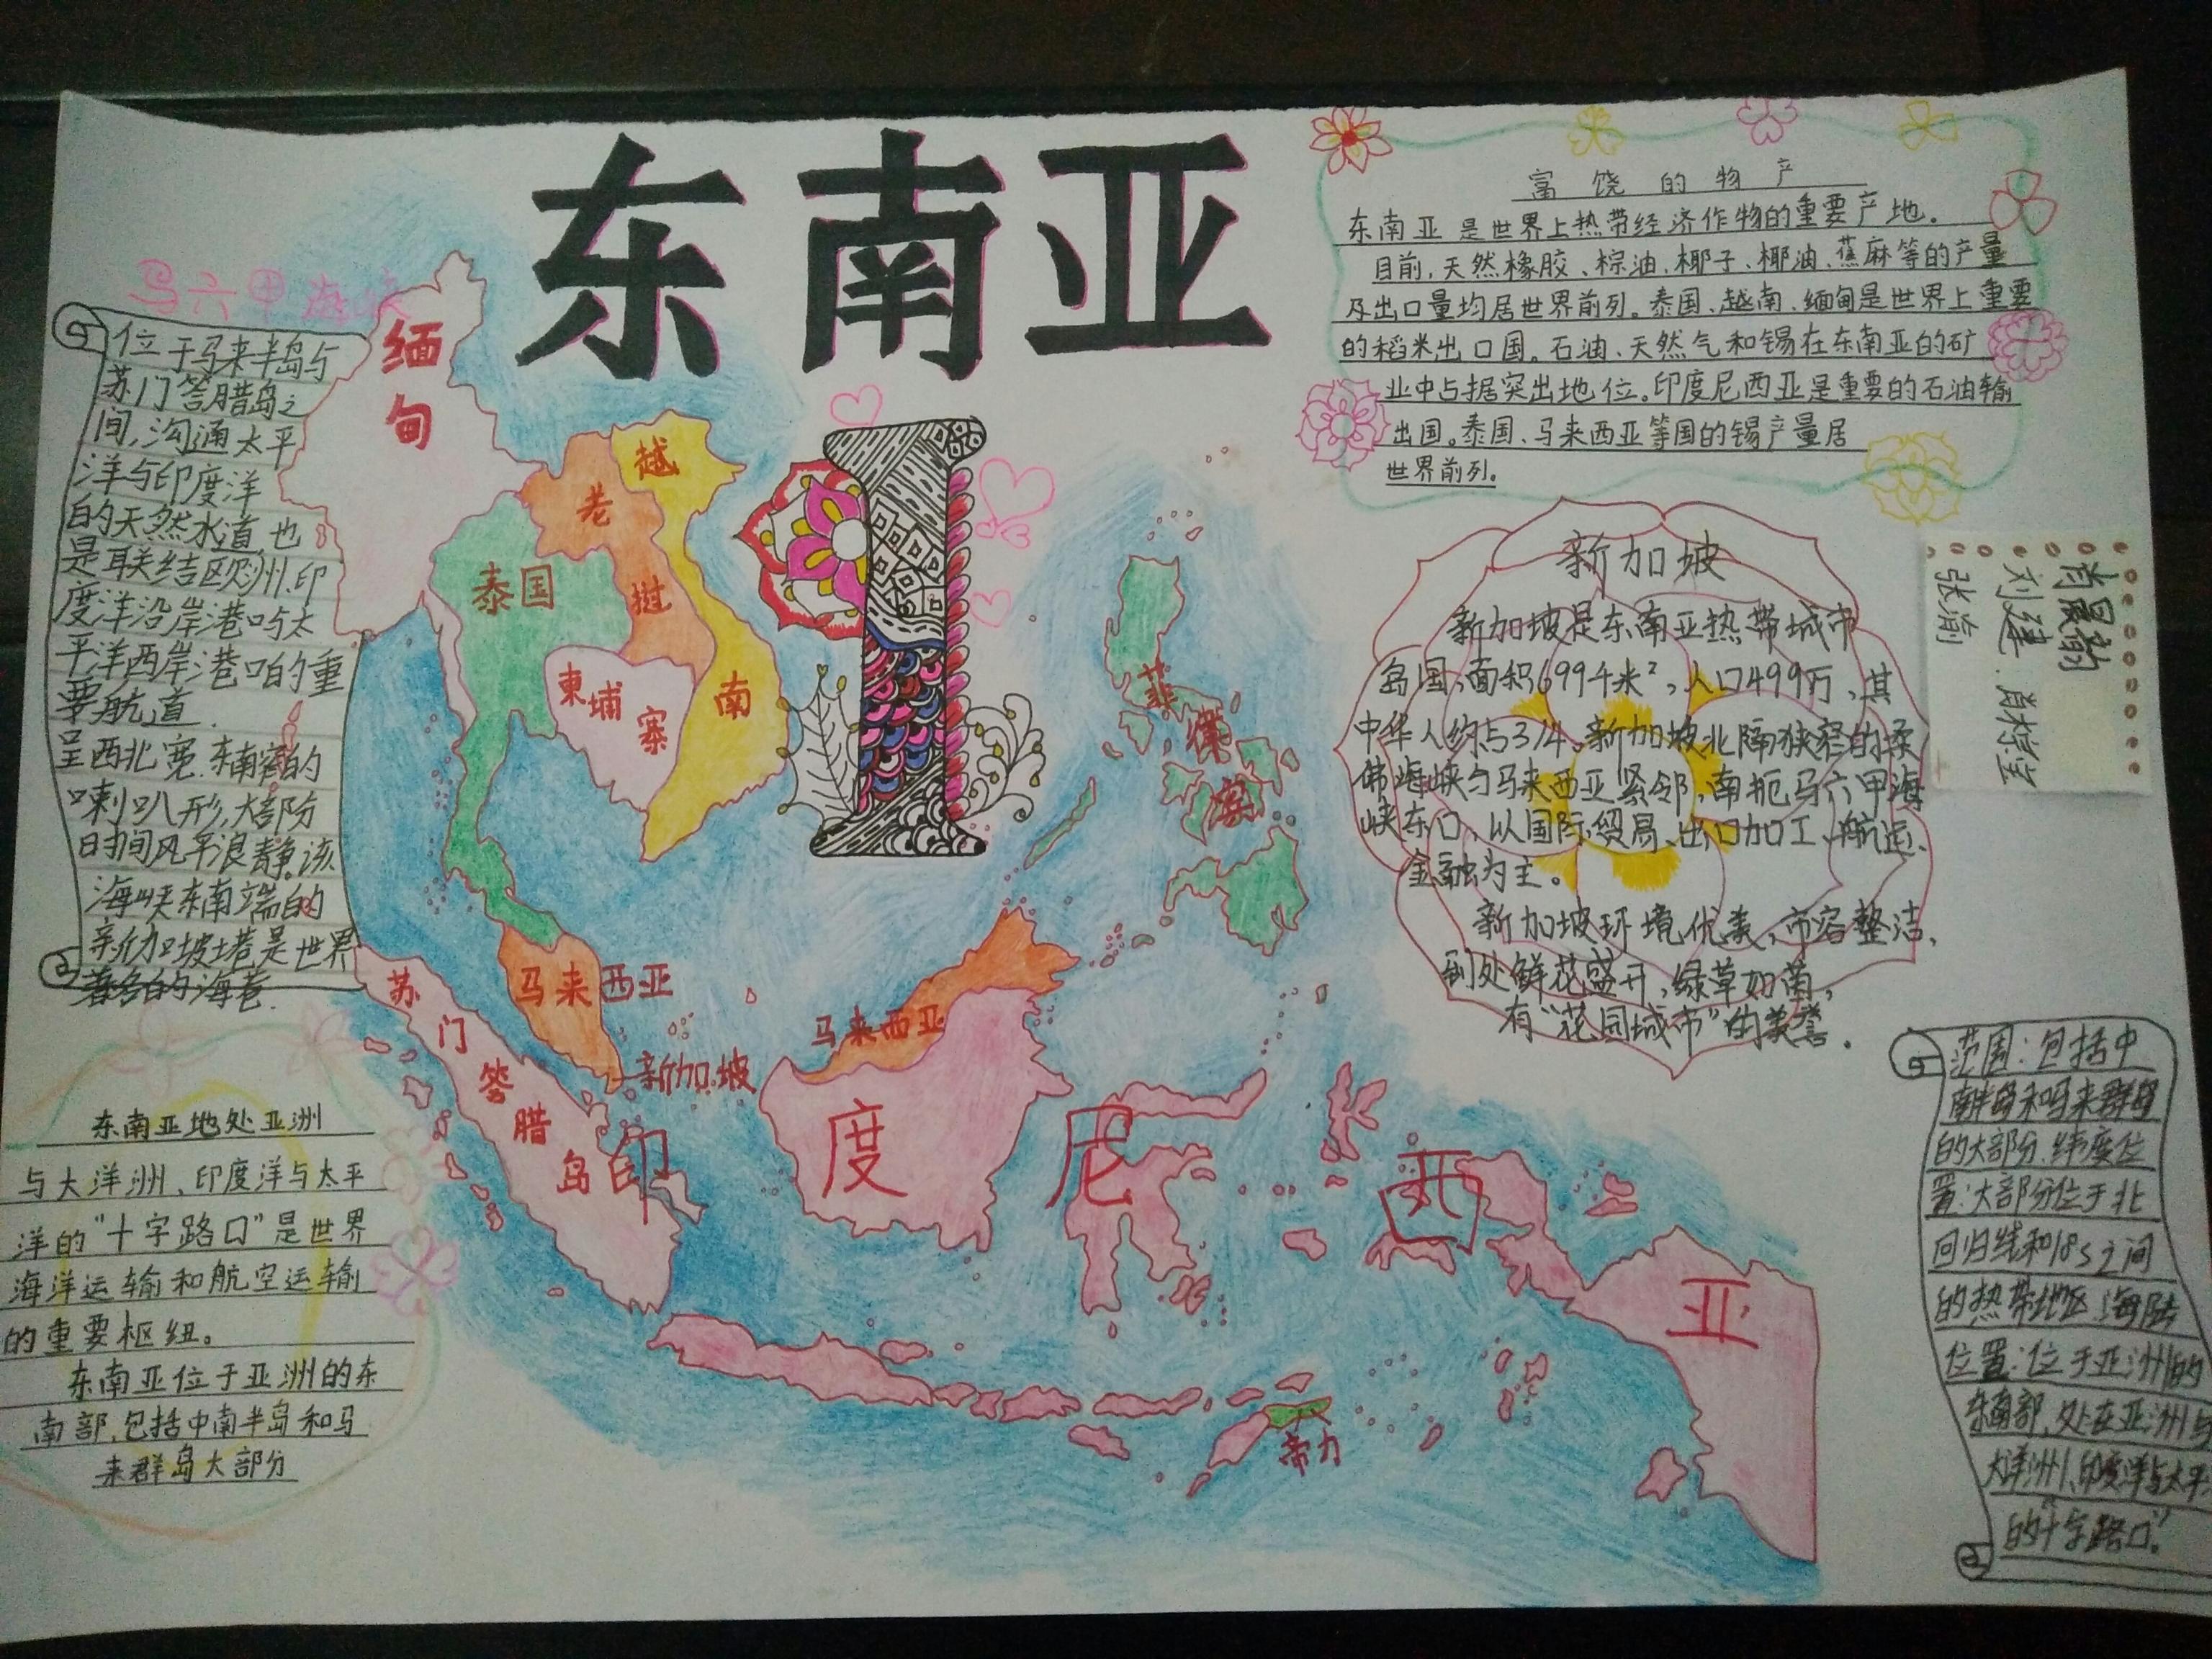 东南亚
马六甲海峡
位于马来半岛与
苏门答腊岛之
间,沟通太平
洋与印度洋
的天然水道,也
是联结欧洲、印
度洋沿岸港口与太
平洋西岸港口的重
要航道.
呈西北宽.东南窄的
喇叭形,大部分
时间风平浪静.该
海峡东南端的
新加坡港是世界
著名的海港.
东南亚地处亚洲
与大洋洲、印度洋与太平
洋的"十字路口"是世界
海洋运输和航空运输
的重要枢纽。
东南亚位于亚洲的东
南部,包括中南半岛和马
来群岛大部分
缅甸
越南
老挝
泰国
柬埔寨
菲律宾
马来西亚
马来西亚
新加坡
苏门答腊岛
印度尼西亚
帝力
富饶的物产
东南亚是世界上热带经济作物的重要产地。
目前,天然橡胶、棕油、椰子、椰油、蕉麻等的产量
及出口量均居世界前列。泰国、越南、缅甸是世界上重要
的稻米出口国。石油、天然气和锡在东南亚的矿
业中占据突出地位。印度尼西亚是重要的石油输
出国。泰国、马来西亚等国的锡产量居
世界前列。
新加坡
新加坡是东南亚热带城市
岛国,面积699千米²,人口499万,其
中华人约占3/4。新加坡北隔狭窄的柔
佛海峡与马来西亚紧邻,南扼马六甲海
峡东口,以国际贸易、出口加工、航运、
金融为主。
新加坡环境优美,市容整洁,
到处鲜花盛开,绿草如茵,
有"花园城市"的美誉.
刘建
张渝
范围:包括中
南半岛和马来群岛
的大部分.纬度位
置:大部分位于北
回归线和18s之间
的热带地区.海陆
位置:位于亚洲的
东南部,处在亚洲与
大洋洲、印度洋与太平
的"十字路口"